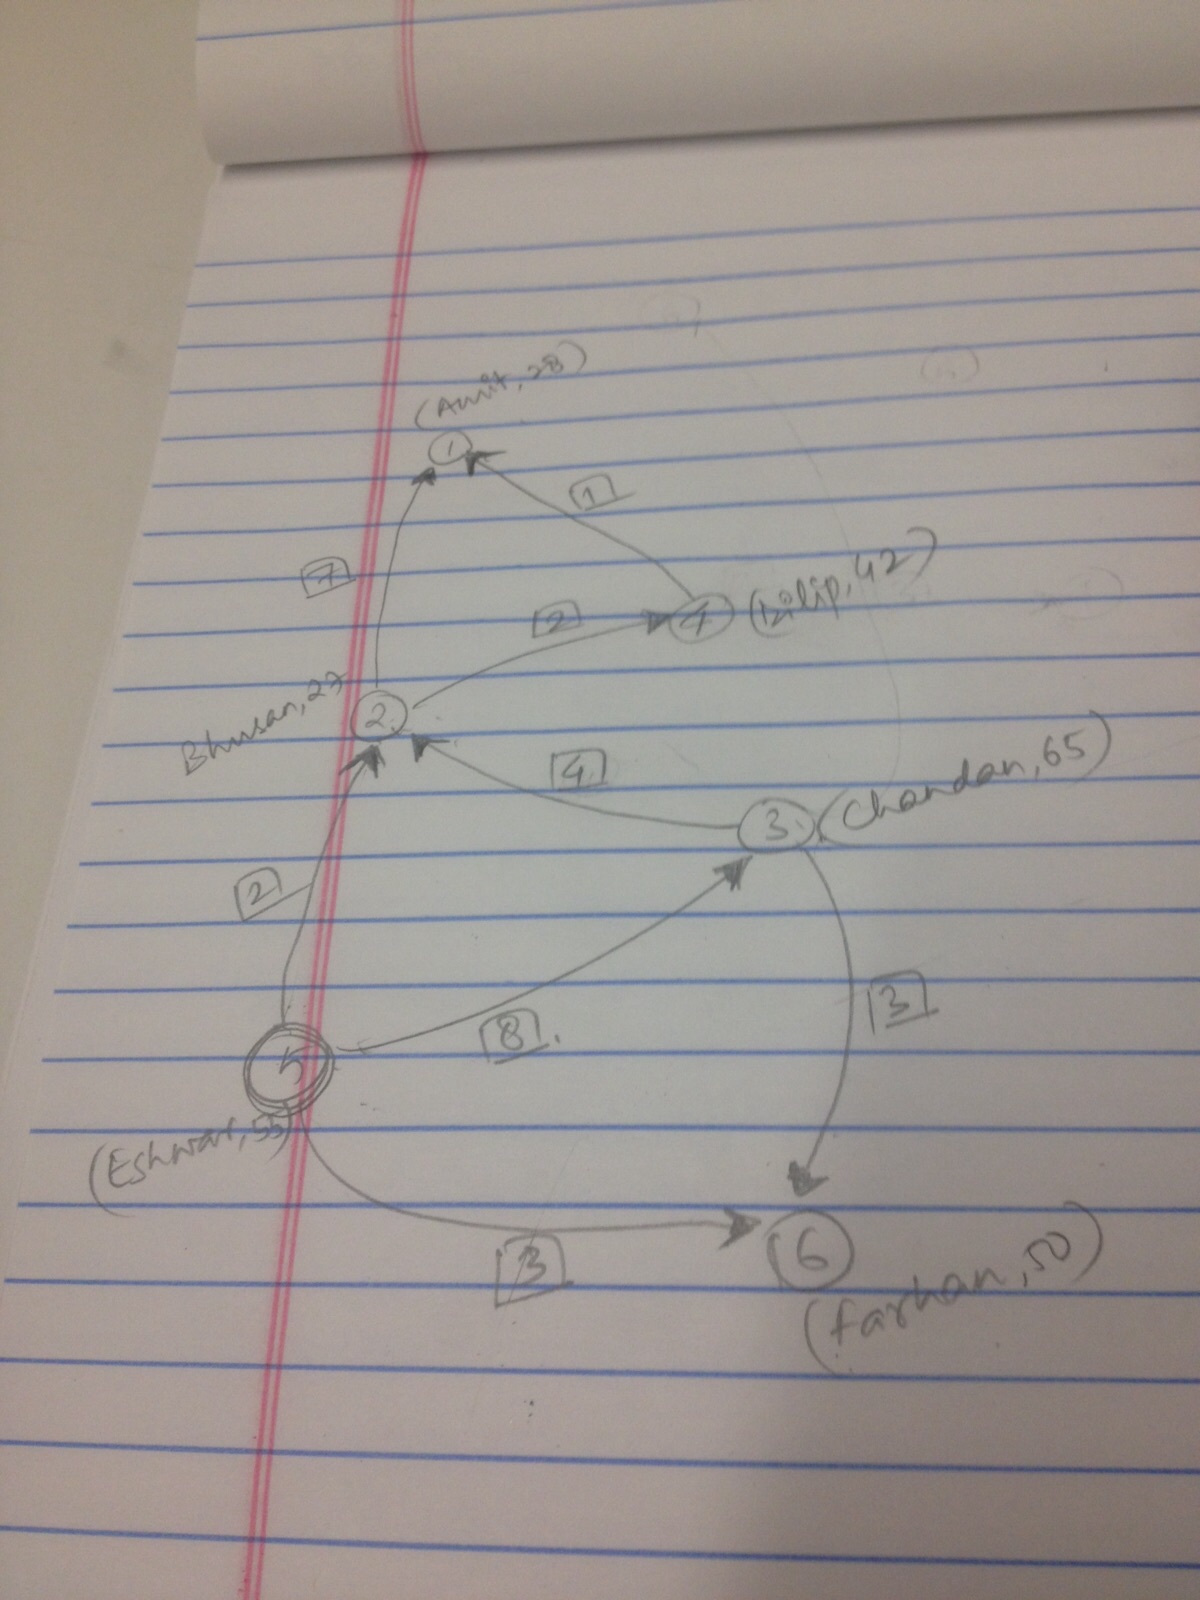 (Amit, 28)
1
1
7
2
4 (Dilip, 42)
Bhusan, 27
2
4
3 (Chandan, 65)
2
3
8
5
(Eshwar, 55)
3
6
(Farhan, 50)